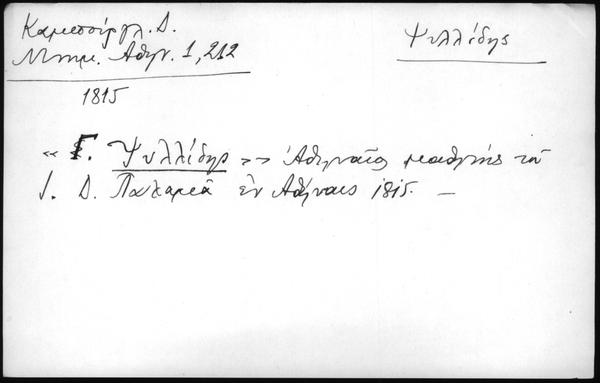 Καμπούρογλ. Δ.
Μνημ. Αθην. 1, 212
Ψυλλίδης
1815
« Γ. Ψυλλίδης >> Ἀθηναῖος μαθητής τοῦ
Ι. Δ. Παλαμᾶ ἐν Ἀθήναις 1815. —